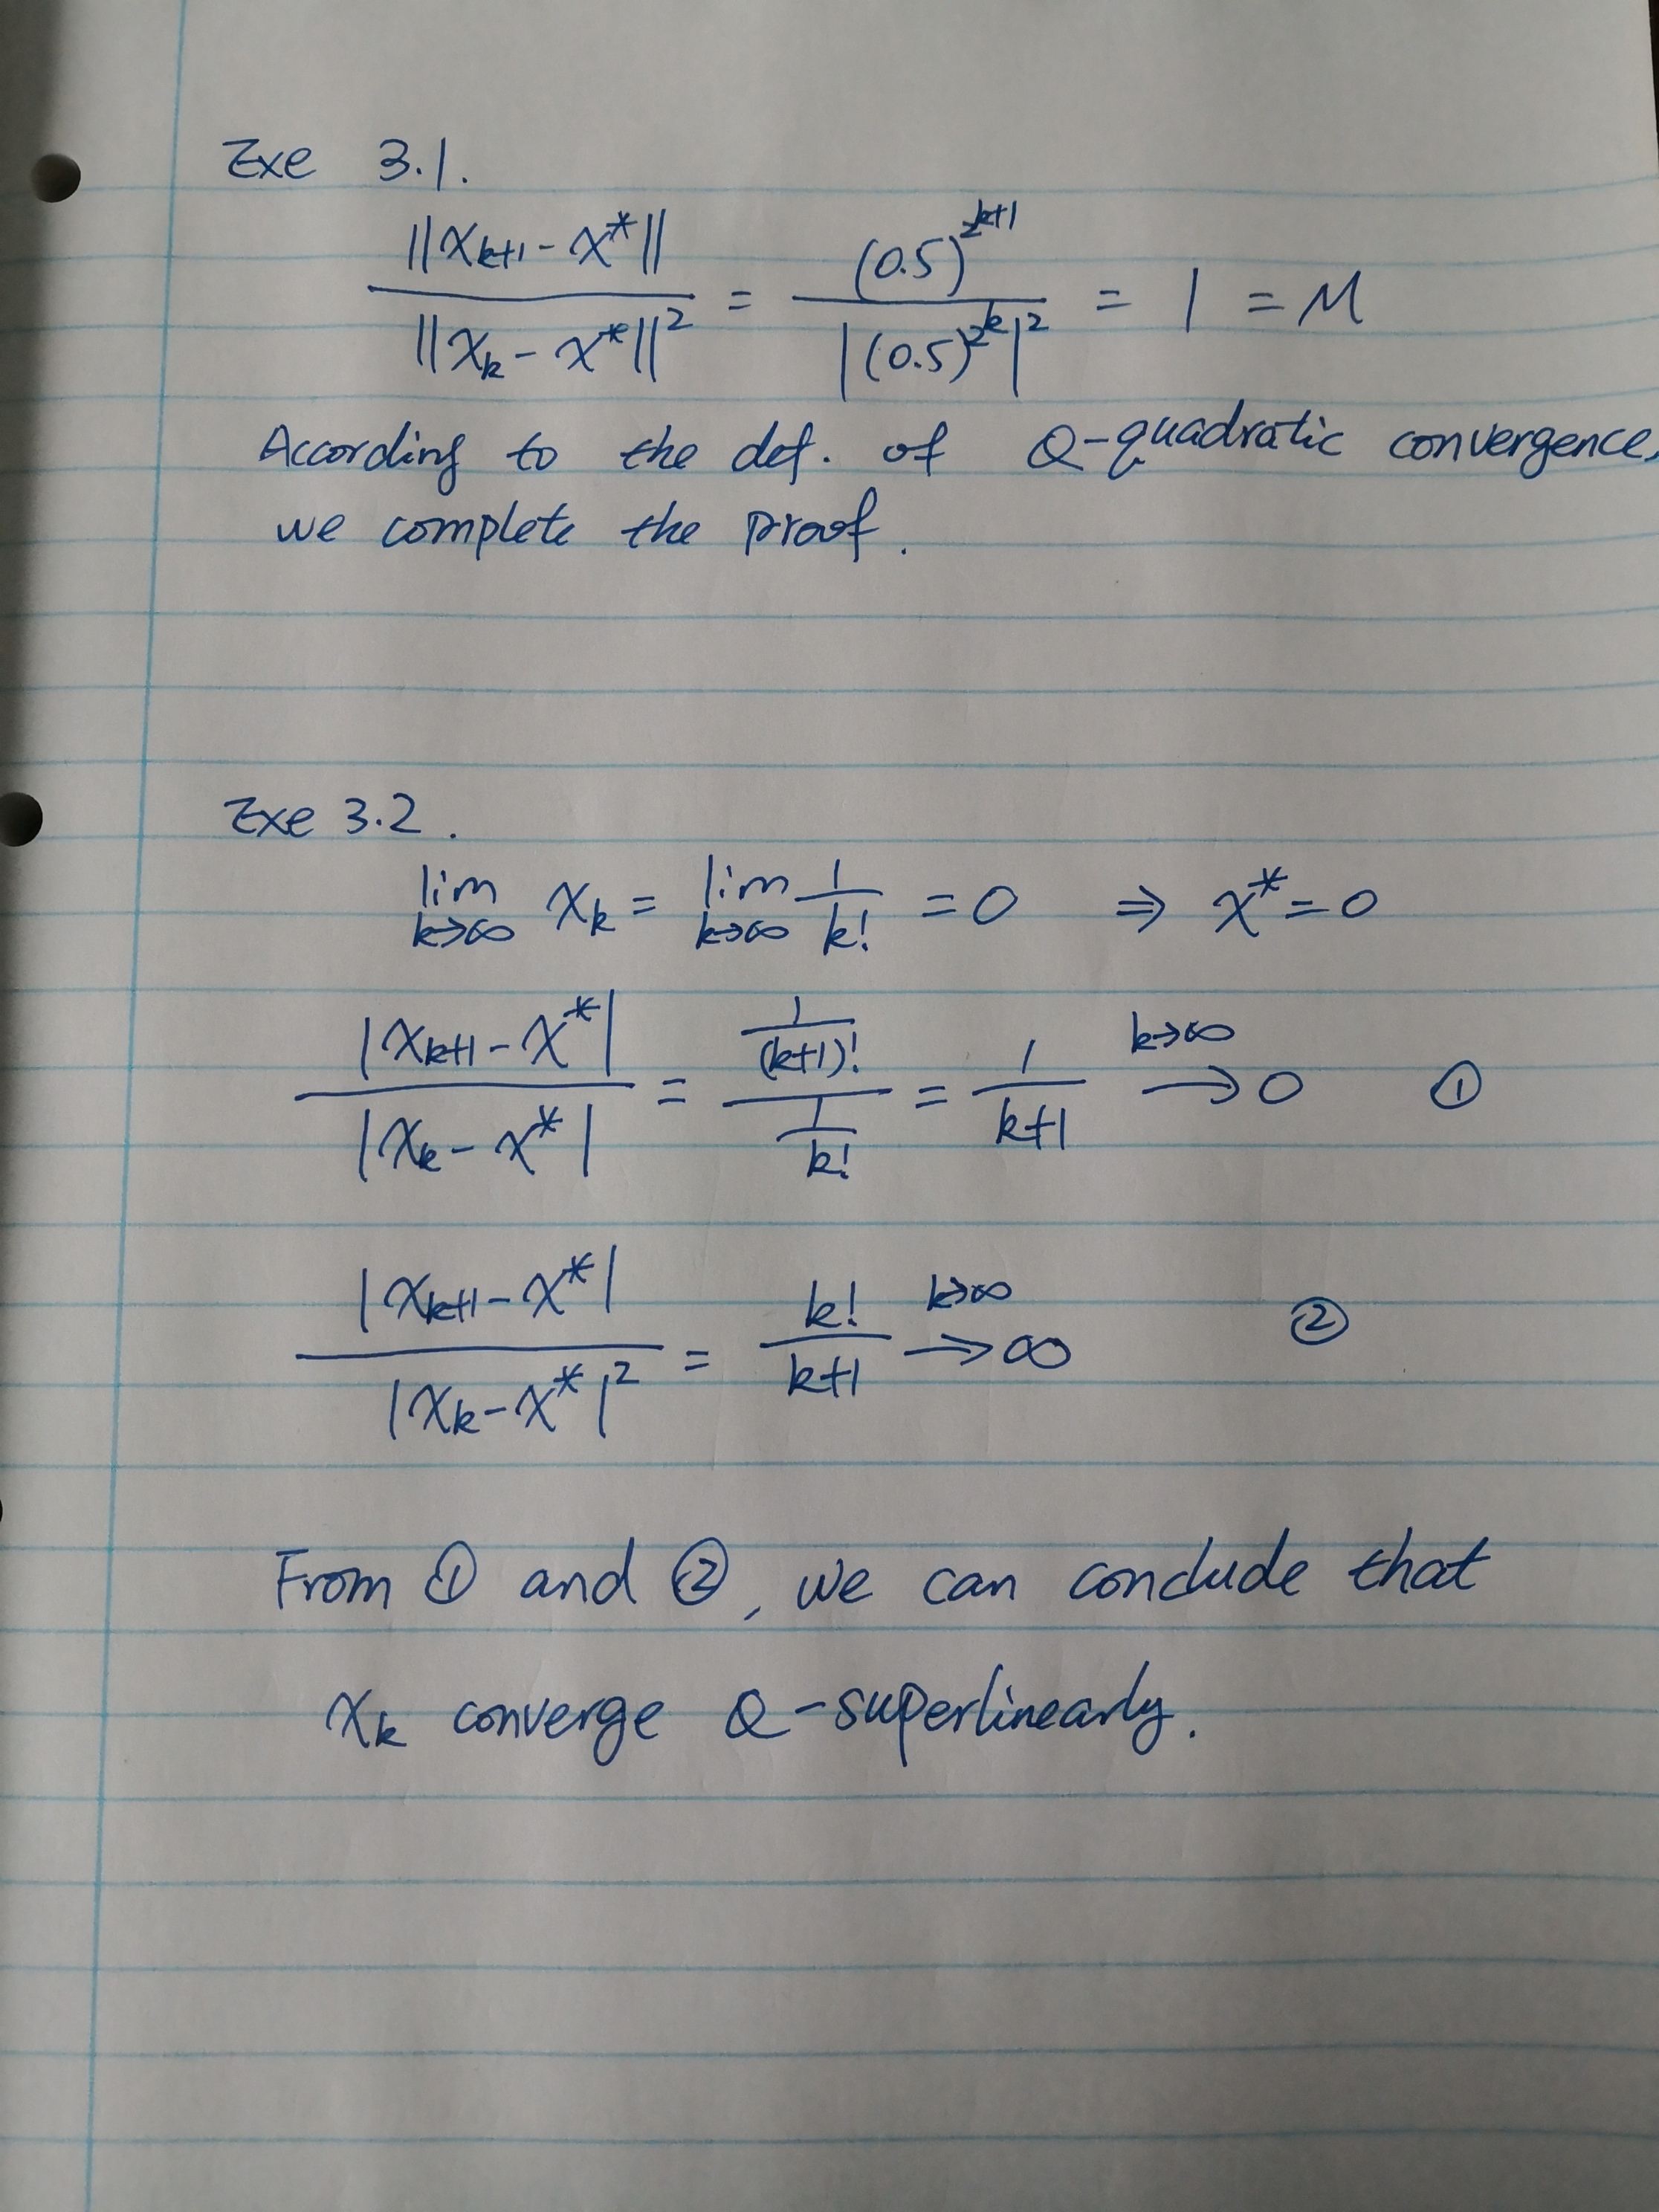 Exe 3.1.
||x_{k+1} - x^*|| / ||x_k - x^*||^2 = (0.5)^{2^{k+1}} / |(0.5)^{2^k}|^2 = 1 = M
According to the def. of Q-quadratic convergence,
we complete the proof.
Exe 3.2.
lim_{k→∞} x_k = lim_{k→∞} 1/k! = 0 ⇒ x^* = 0
|x_{k+1} - x^*| / |x_k - x^*| = (1/(k+1)!) / (1/k!) = 1/(k+1) →^{k→∞} 0 ①
|x_{k+1} - x^*| / |x_k - x^*|^2 = k!/(k+1) →^{k→∞} ∞ ②
From ① and ②, we can conclude that
x_k converge Q-superlinearly.